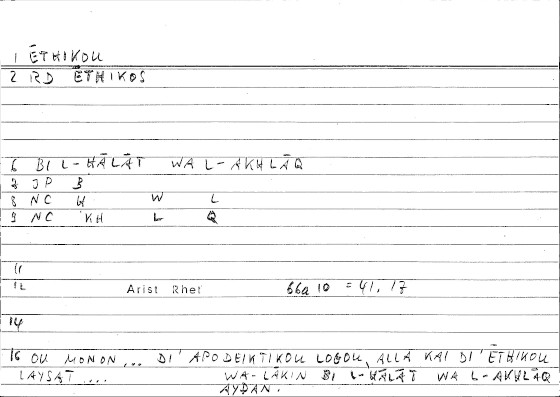 1 ĒTHIKOU
2 RD ĒTHIKOS
6 BI L-HĀLĀT WA L-AKHLĀQ
JP B
8 NC H W L
9 NC KH L Q
11
12 Arist Rhet 66a 10 = 41, 17
14
16 OU MONON... DI' APODEIKTIKOU LOGOU, ALLA KAI DI' ĒTHIKOU
LAYSAT .... WA-LĀKIN BI L-HĀLĀT WA L-AKHLĀQ
AYDAN.